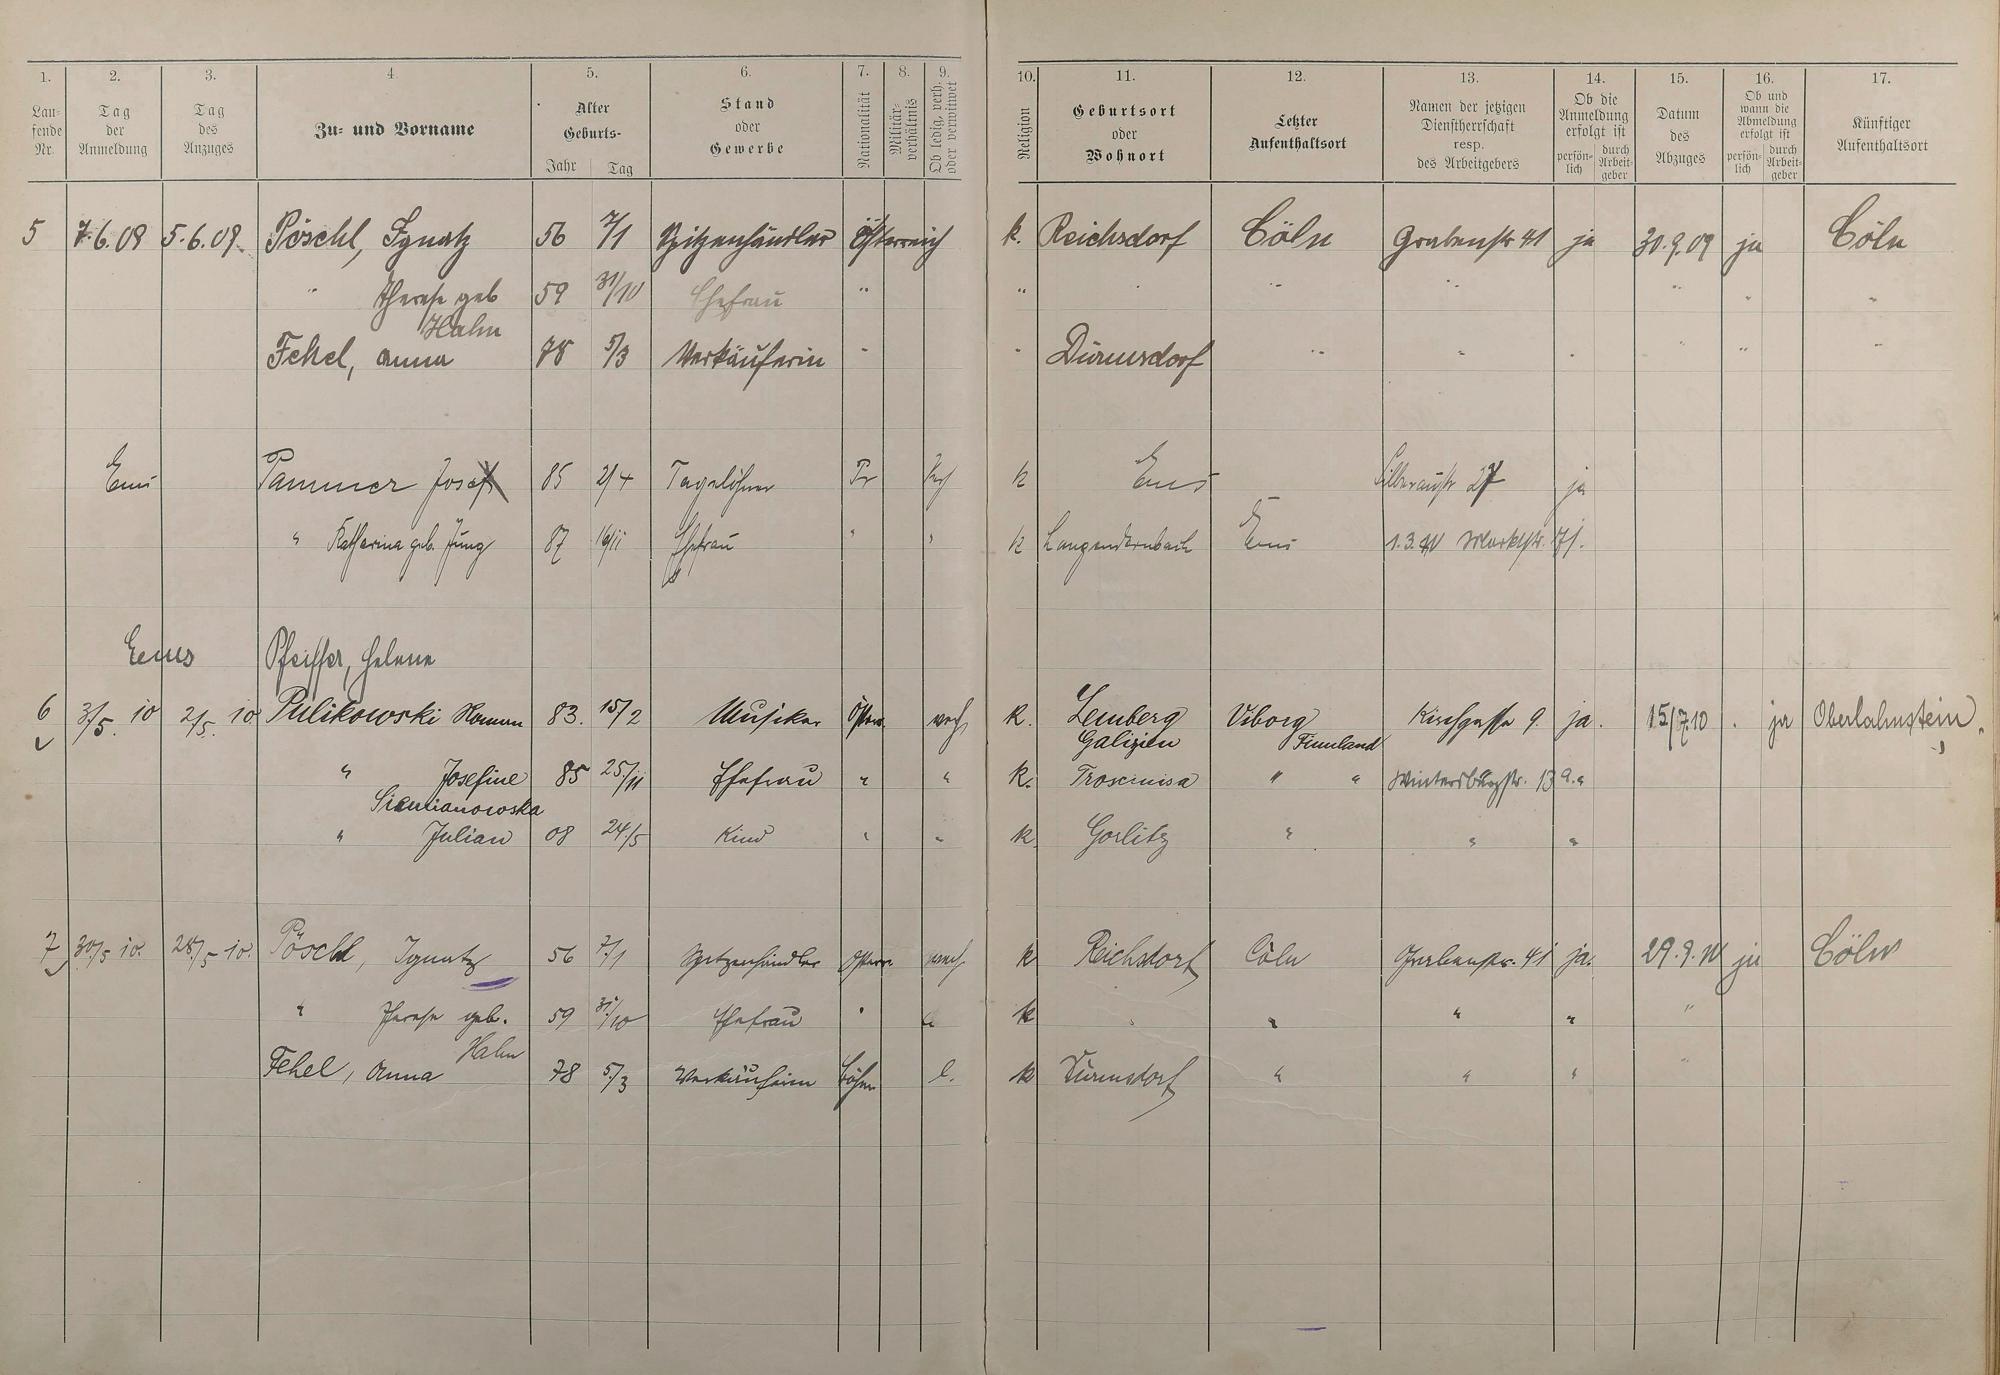 1. 2. 3. 4. 5. 6. 7. 8. 9. 10. 11. 12. 13. 14. 15. 16. 17.
Laufende Nr.
Tag der Anmeldung
Tag des Anzuges
Zu- und Vorname
Alter Geburts- Jahr Tag
Stand oder Gewerbe
Nationalität
Militärverhältnis
Ob ledig, verh. oder verwitwet
Religion
Geburtsort oder Wohnort
Letzter Aufenthaltsort
Namen der jetzigen Dienstherrschaft resp. des Arbeitgebers
Ob die Anmeldung erfolgt ist persönlich durch Arbeitgeber
Datum des Abzuges
Ob und wann die Abmeldung erfolgt ist persönlich durch Arbeitgeber
Künftiger Aufenthaltsort
5 7.6.09 5.6.09. Pöschl, Ignatz 56 7/1 Spitzenhändler Österreich k. Reichsdorf Cöln Grabenstr 41 ja 30.9.09 ja Cöln
" Therese geb 59 31/10 Ehefrau " " " " " " " "
Hahn
Fehel, Anna 78 5/3 Verkäuferin " " Dürnsdorf " " " " " "
Ems Pammer Josef 85 2/4 Tagelöhner Pr k Ems Silberaustr 27 ja
" Katharina geb. Jung 87 16/11 Ehefrau " " k Langendernbach Ems 1.3.10 Marktstr. 71.
Ems Pfeiffer, Helene
6 3/5. 10 2/5. 10 Pulikowski Roman 83. 15/2 Musiker Österr. verh k. Lemberg Viborg Kirchgasse 9. ja. 15/7.10 ja Oberlahnstein.
Galizien Finnland
" Josefine 85 25./11 Ehefrau " " k. " " Wintersbergstr. 13 a. "
Siemianowska
" Julian 08 24./5 Kind " " k. Gorlitz " " "
7 30./5 10. 28./5 10. Pöschl, Ignatz 56 7/1 Spitzenhändler Österr. verh. k Reichsdorf Cöln Grabenstr. 41 ja. 29.9.10 ja Cöln
" Therese geb. 59 31./10 Ehefrau " " k " " " " "
Hahn
Fehel, Anna 78 5./3 Verkäuferin Böhm l. k Dürnsdorf " " " "